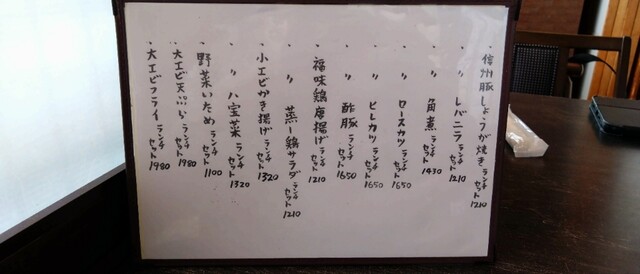 ・信州豚しょうが焼き ランチセット 1210
・〃 レバニラ ランチセット 1210
・〃 角煮 ランチセット 1430
・〃 ロースカツ ランチセット 1650
・〃 ヒレカツ ランチセット 1650
・〃 酢豚 ランチセット 1650
・福味鶏唐揚げ ランチセット 1210
・〃 蒸し鶏サラダ ランチセット 1210
・小エビかき揚げ ランチセット 1320
・〃 八宝菜 ランチセット 1320
・野菜いため ランチセット 1100
・大エビ天ぷら ランチセット 1980
・大エビフライ ランチセット 1980